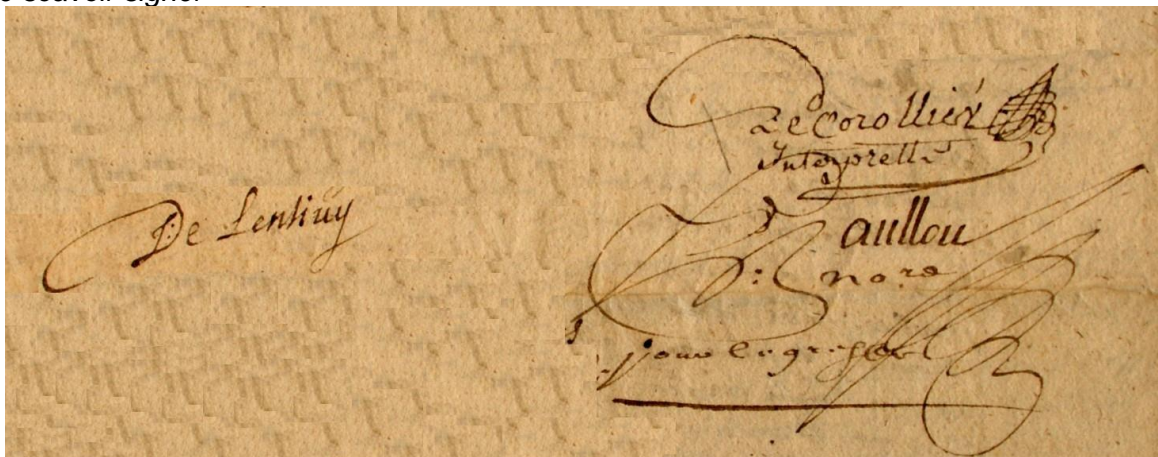 De Lentiuy
Le Corollier
Interprette
aullou
nore
pour le greffe